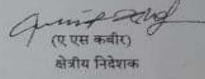 (ए एस कबीर)
क्षेत्रीय निदेशक